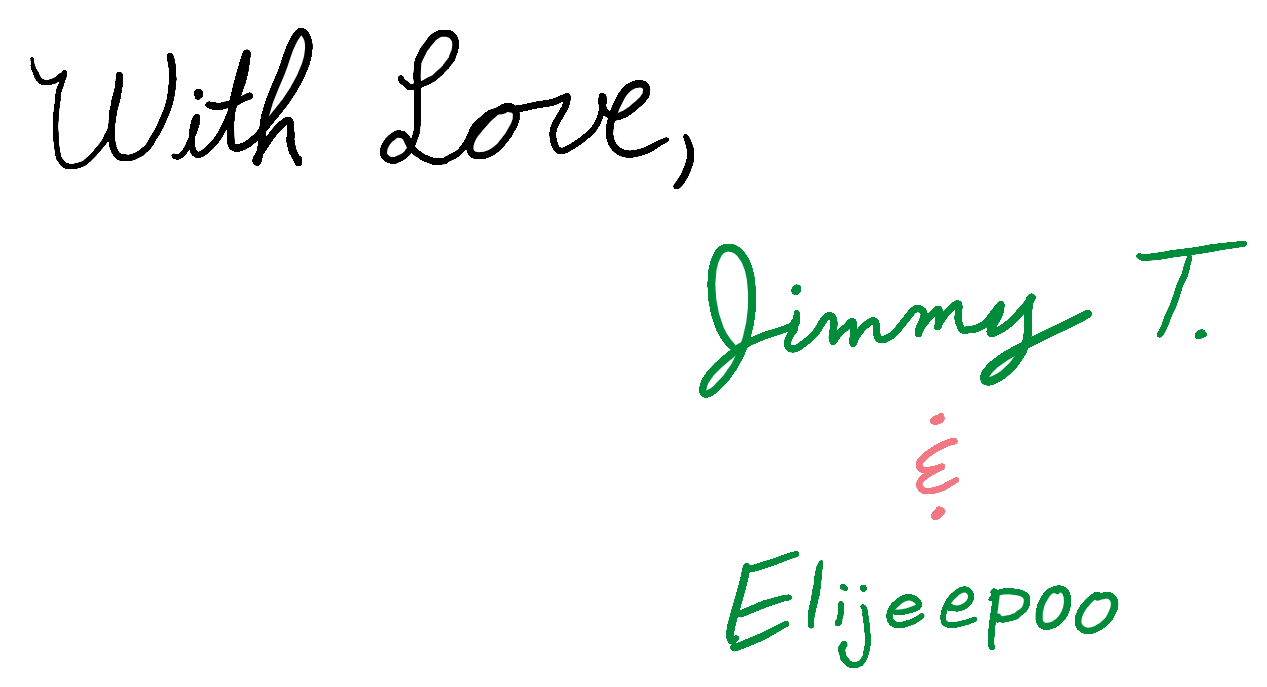 With Love,
Jimmy T.
&
Elijeepoo